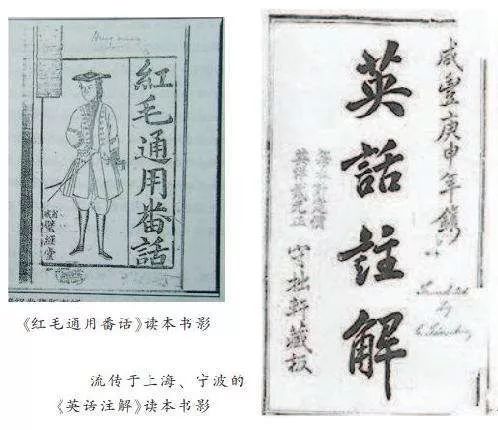 紅毛通用番話
省城
璧經堂
《红毛通用番话》读本书影
咸豐庚申年鐫
英話註解
守拙軒藏板
流传于上海、宁波的
《英语注解》读本书影